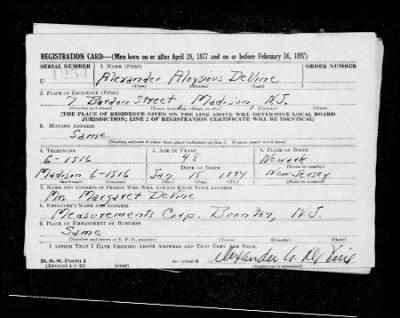 REGISTRATION CARD—(Men born on or after April 28, 1877 and on or before February 16, 1897)
SERIAL NUMBER 1. NAME (Print) ORDER NUMBER
U 1254 Alexander Aloysius DeVine
(First) (Middle) (Last)
2. PLACE OF RESIDENCE (Print)
7 Street Madison, N.J.
(Number and street) (Town, township, village, or city) (County) (State)
[THE PLACE OF RESIDENCE GIVEN ON THE LINE ABOVE WILL DETERMINE LOCAL BOARD
JURISDICTION; LINE 2 OF REGISTRATION CERTIFICATE WILL BE IDENTICAL]
3. MAILING ADDRESS
Same
(Mailing address if other than place indicated on line 2. If same insert word same)
4. TELEPHONE 5. AGE IN YEARS 6. PLACE OF BIRTH
6-1516 48 Newark
DATE OF BIRTH (Town or county)
Madison 6-1516 Jan 15 1894 New Jersey
(Exchange) (Number) (Mo.) (Day) (Yr.) (State or country)
7. NAME AND ADDRESS OF PERSON WHO WILL ALWAYS KNOW YOUR ADDRESS
Mrs. Margaret DeVine
8. EMPLOYER'S NAME AND ADDRESS
Measurements Corp. Boonton, N.J.
9. PLACE OF EMPLOYMENT OR BUSINESS
Same
(Number and street or R. F. D. number) (Town) (County) (State)
I AFFIRM THAT I HAVE VERIFIED ABOVE ANSWERS AND THAT THEY ARE TRUE.
D. S. S. Form 1
(Revised 4-1-42) Alexander A. DeVine